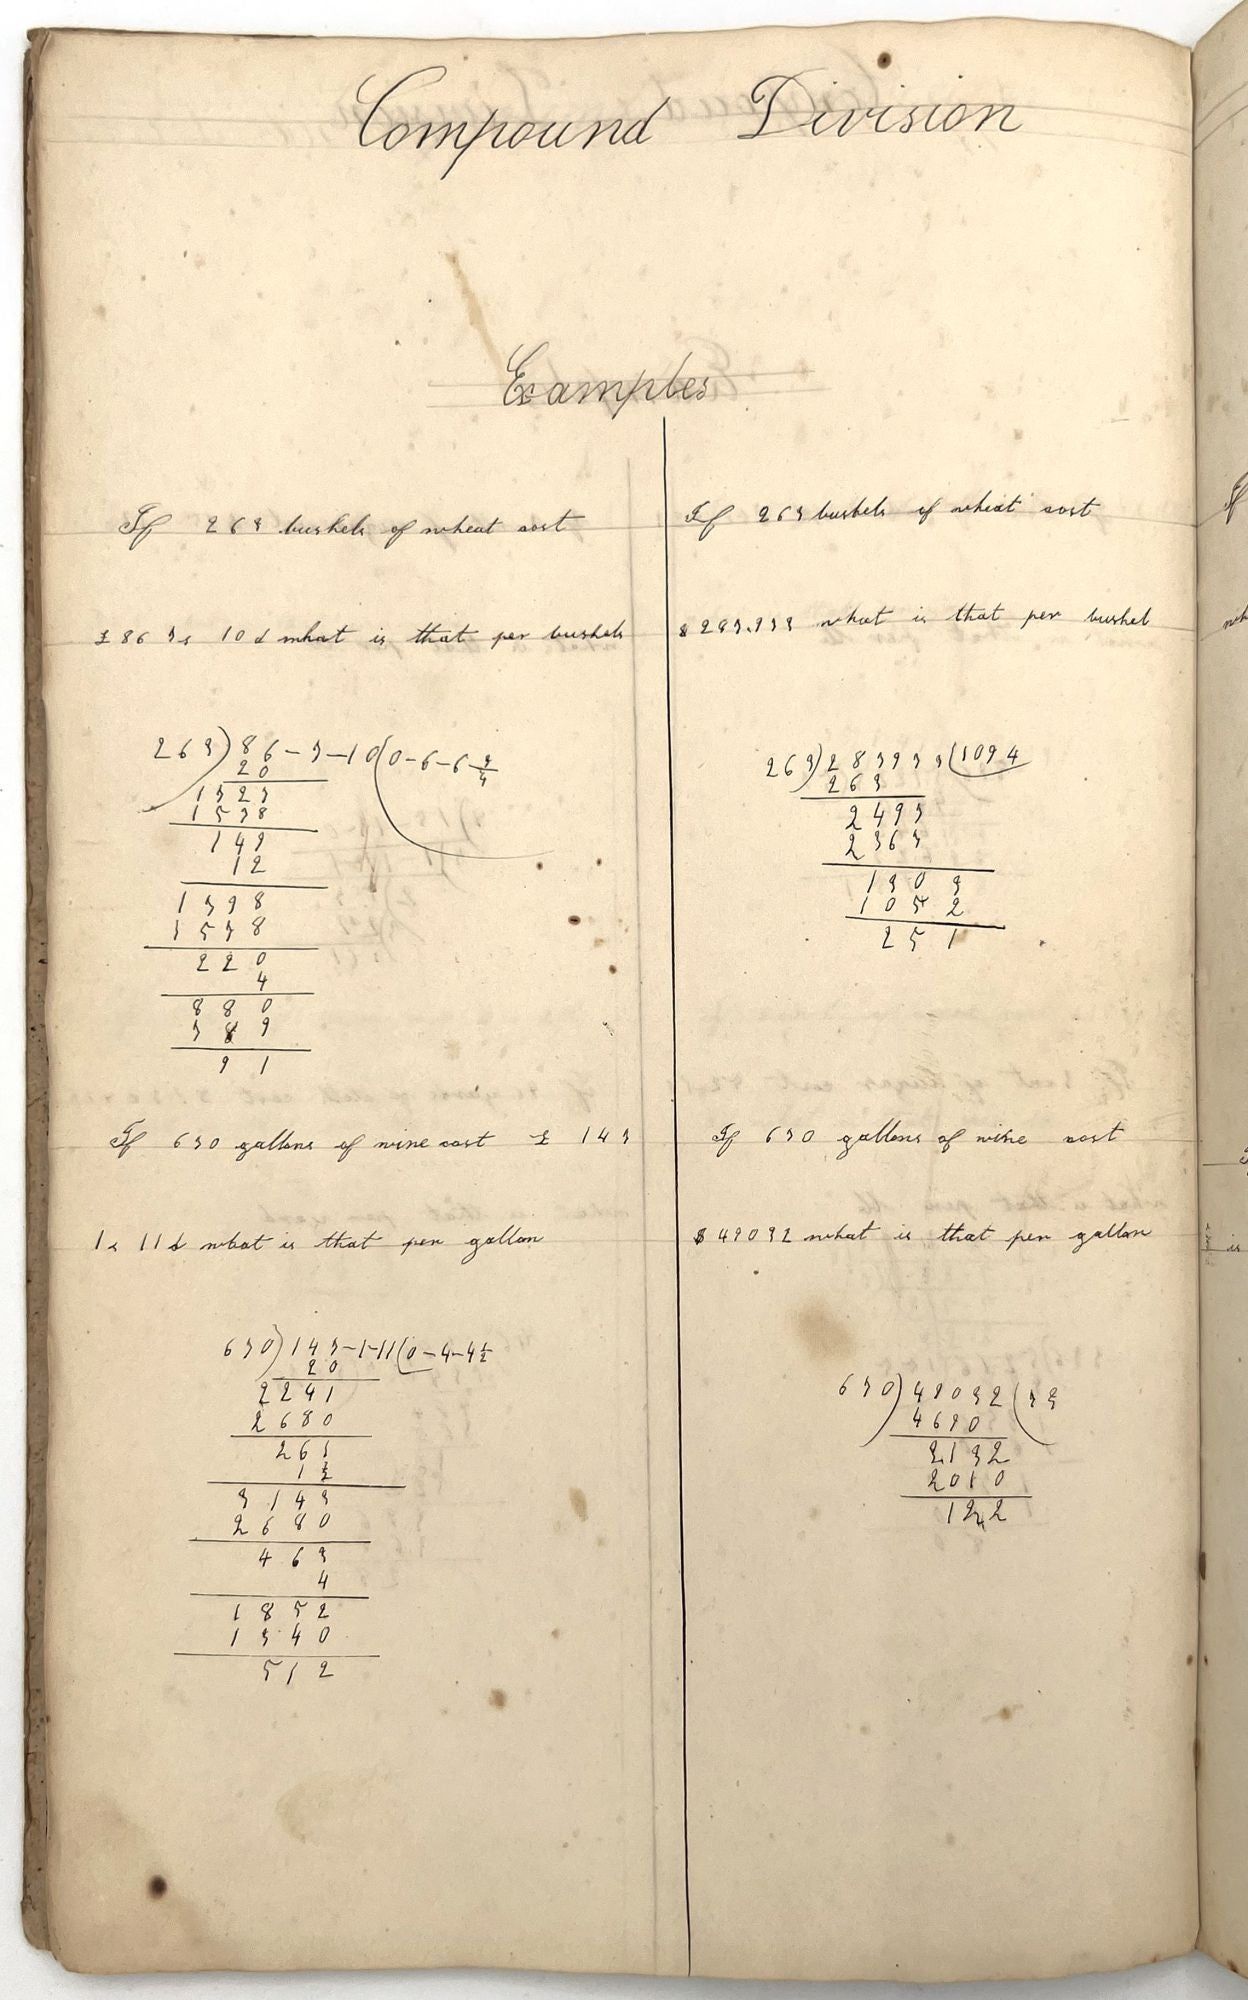 Compound Division
Examples
If 263 bushels of wheat cost
£86 7s 10d what is that per bushels
263)86-7-10(0-6-6 3/4
20
1727
1578
149
12
1798
1578
220
4
880
789
91
If 670 gallons of wine cost £ 147
1s 11d what is that per gallon
670)147-1-11(0-4-4 1/2
20
2941
2680
261
12
3143
2680
463
4
1852
1340
512
If 263 bushels of wheat cost
$287.973 what is that per bushel
263)287973(1094
263
2497
2367
1303
1052
251
If 670 gallons of wine cost
$49032 what is that per gallon
670)49032(73
4690
2132
2010
122